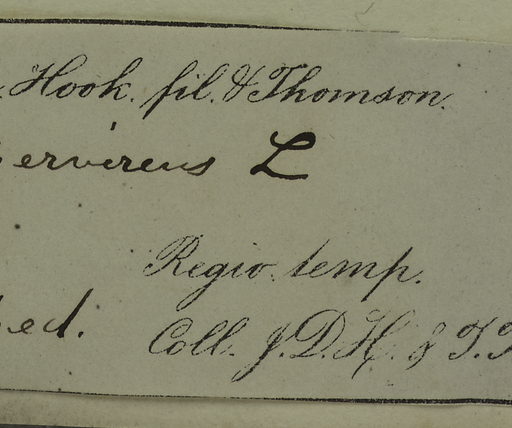 Hook. fil. & Thomson.
ervirens L
Regio temp.
ed. Coll. J. D. H. & T. T